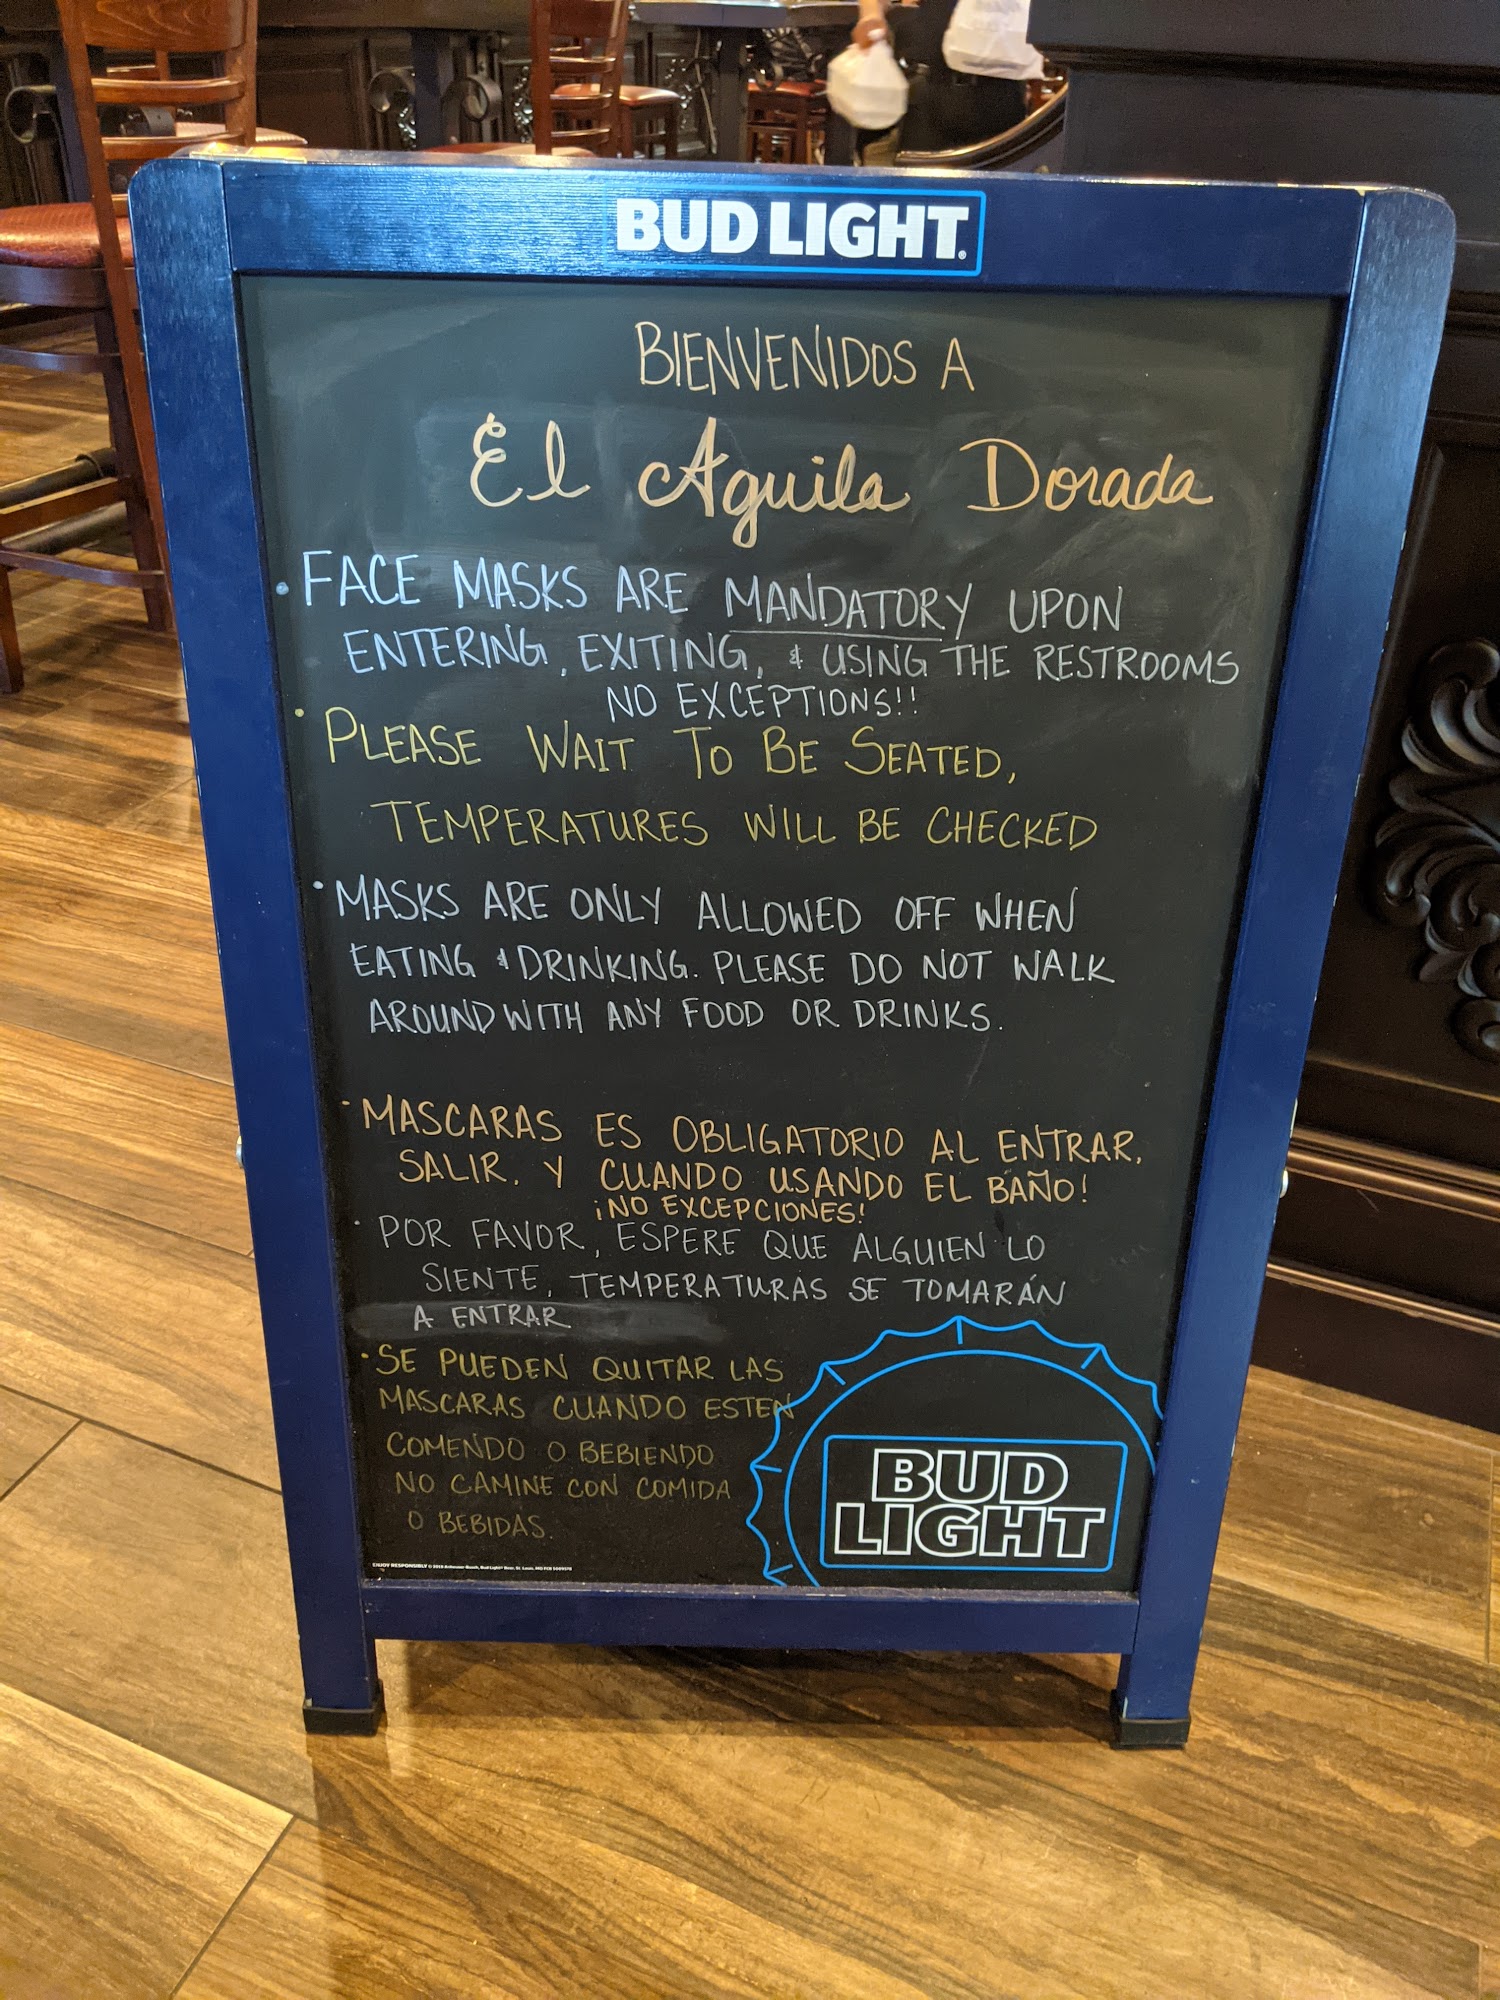 BUD LIGHT
BIENVENIDOS A
El Aguila Dorada
• FACE MASKS ARE MANDATORY UPON
ENTERING, EXITING, & USING THE RESTROOMS
NO EXCEPTIONS!!
• PLEASE WAIT TO BE SEATED,
TEMPERATURES WILL BE CHECKED
• MASKS ARE ONLY ALLOWED OFF WHEN
EATING & DRINKING. PLEASE DO NOT WALK
AROUND WITH ANY FOOD OR DRINKS.
• MASCARAS ES OBLIGATORIO AL ENTRAR,
SALIR, Y CUANDO USANDO EL BAÑO!
¡NO EXCEPCIONES!
• POR FAVOR, ESPERE QUE ALGUIEN LO
SIENTE, TEMPERATURAS SE TOMARÁN
A ENTRAR
• SE PUEDEN QUITAR LAS
MASCARAS CUANDO ESTEN
COMENDO O BEBIENDO
NO CAMINE CON COMIDA
O BEBIDAS.
BUD
LIGHT
ENJOY RESPONSIBLY